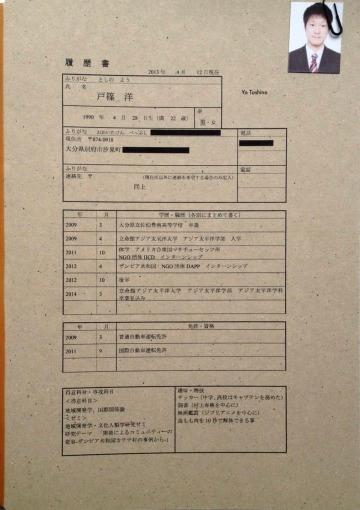 履 歴 書
2013 年 4 月 12 日現在
ふりがな としの よう
氏 名
戸篠 洋
Yo Toshino
1990 年 4 月 28 日生 (満 22 歳)
男・女
ふりがな おおいたけん べっぷし
電話
現住所 〒874-0918
大分県別府市汐見町
ふりがな
電話
連絡先 〒 (現住所以外に連絡を希望する場合のみ記入)
同上
年 月 学歴・職歴 (各別にまとめて書く)
2009 3 大分県立佐伯豊南高等学校 卒業
2009 4 立命館アジア太平洋大学 アジア太平洋学部 入学
2011 10 休学 アメリカ合衆国マサチューセッツ州
NGO 団体 IICD インターンシップ
2012 4 ザンビア共和国 NGO 団体 DAPP インターンシップ
2012 10 復学
2014 3 立命館アジア太平洋大学 アジア太平洋学部 アジア太平洋学科
卒業見込み
年 月 免許・資格
2009 3 普通自動車運転免許
2011 9 国際自動車運転免許
得意科目・専攻科目
<得意科目>
地域開発学、国際関係論
<ゼミ>
地域開発学・文化人類学研究ゼミ
研究テーマ 「開発によるコミュニティーの
変容-ザンビア共和国カサテ村の事例から-」
趣味・特技
サッカー (中学、高校はキャプテンを務めた)
読書 (村上春樹を中心に)
映画鑑賞 (ジブリアニメを中心に)
鳥もも肉を 10 秒で解体できる事